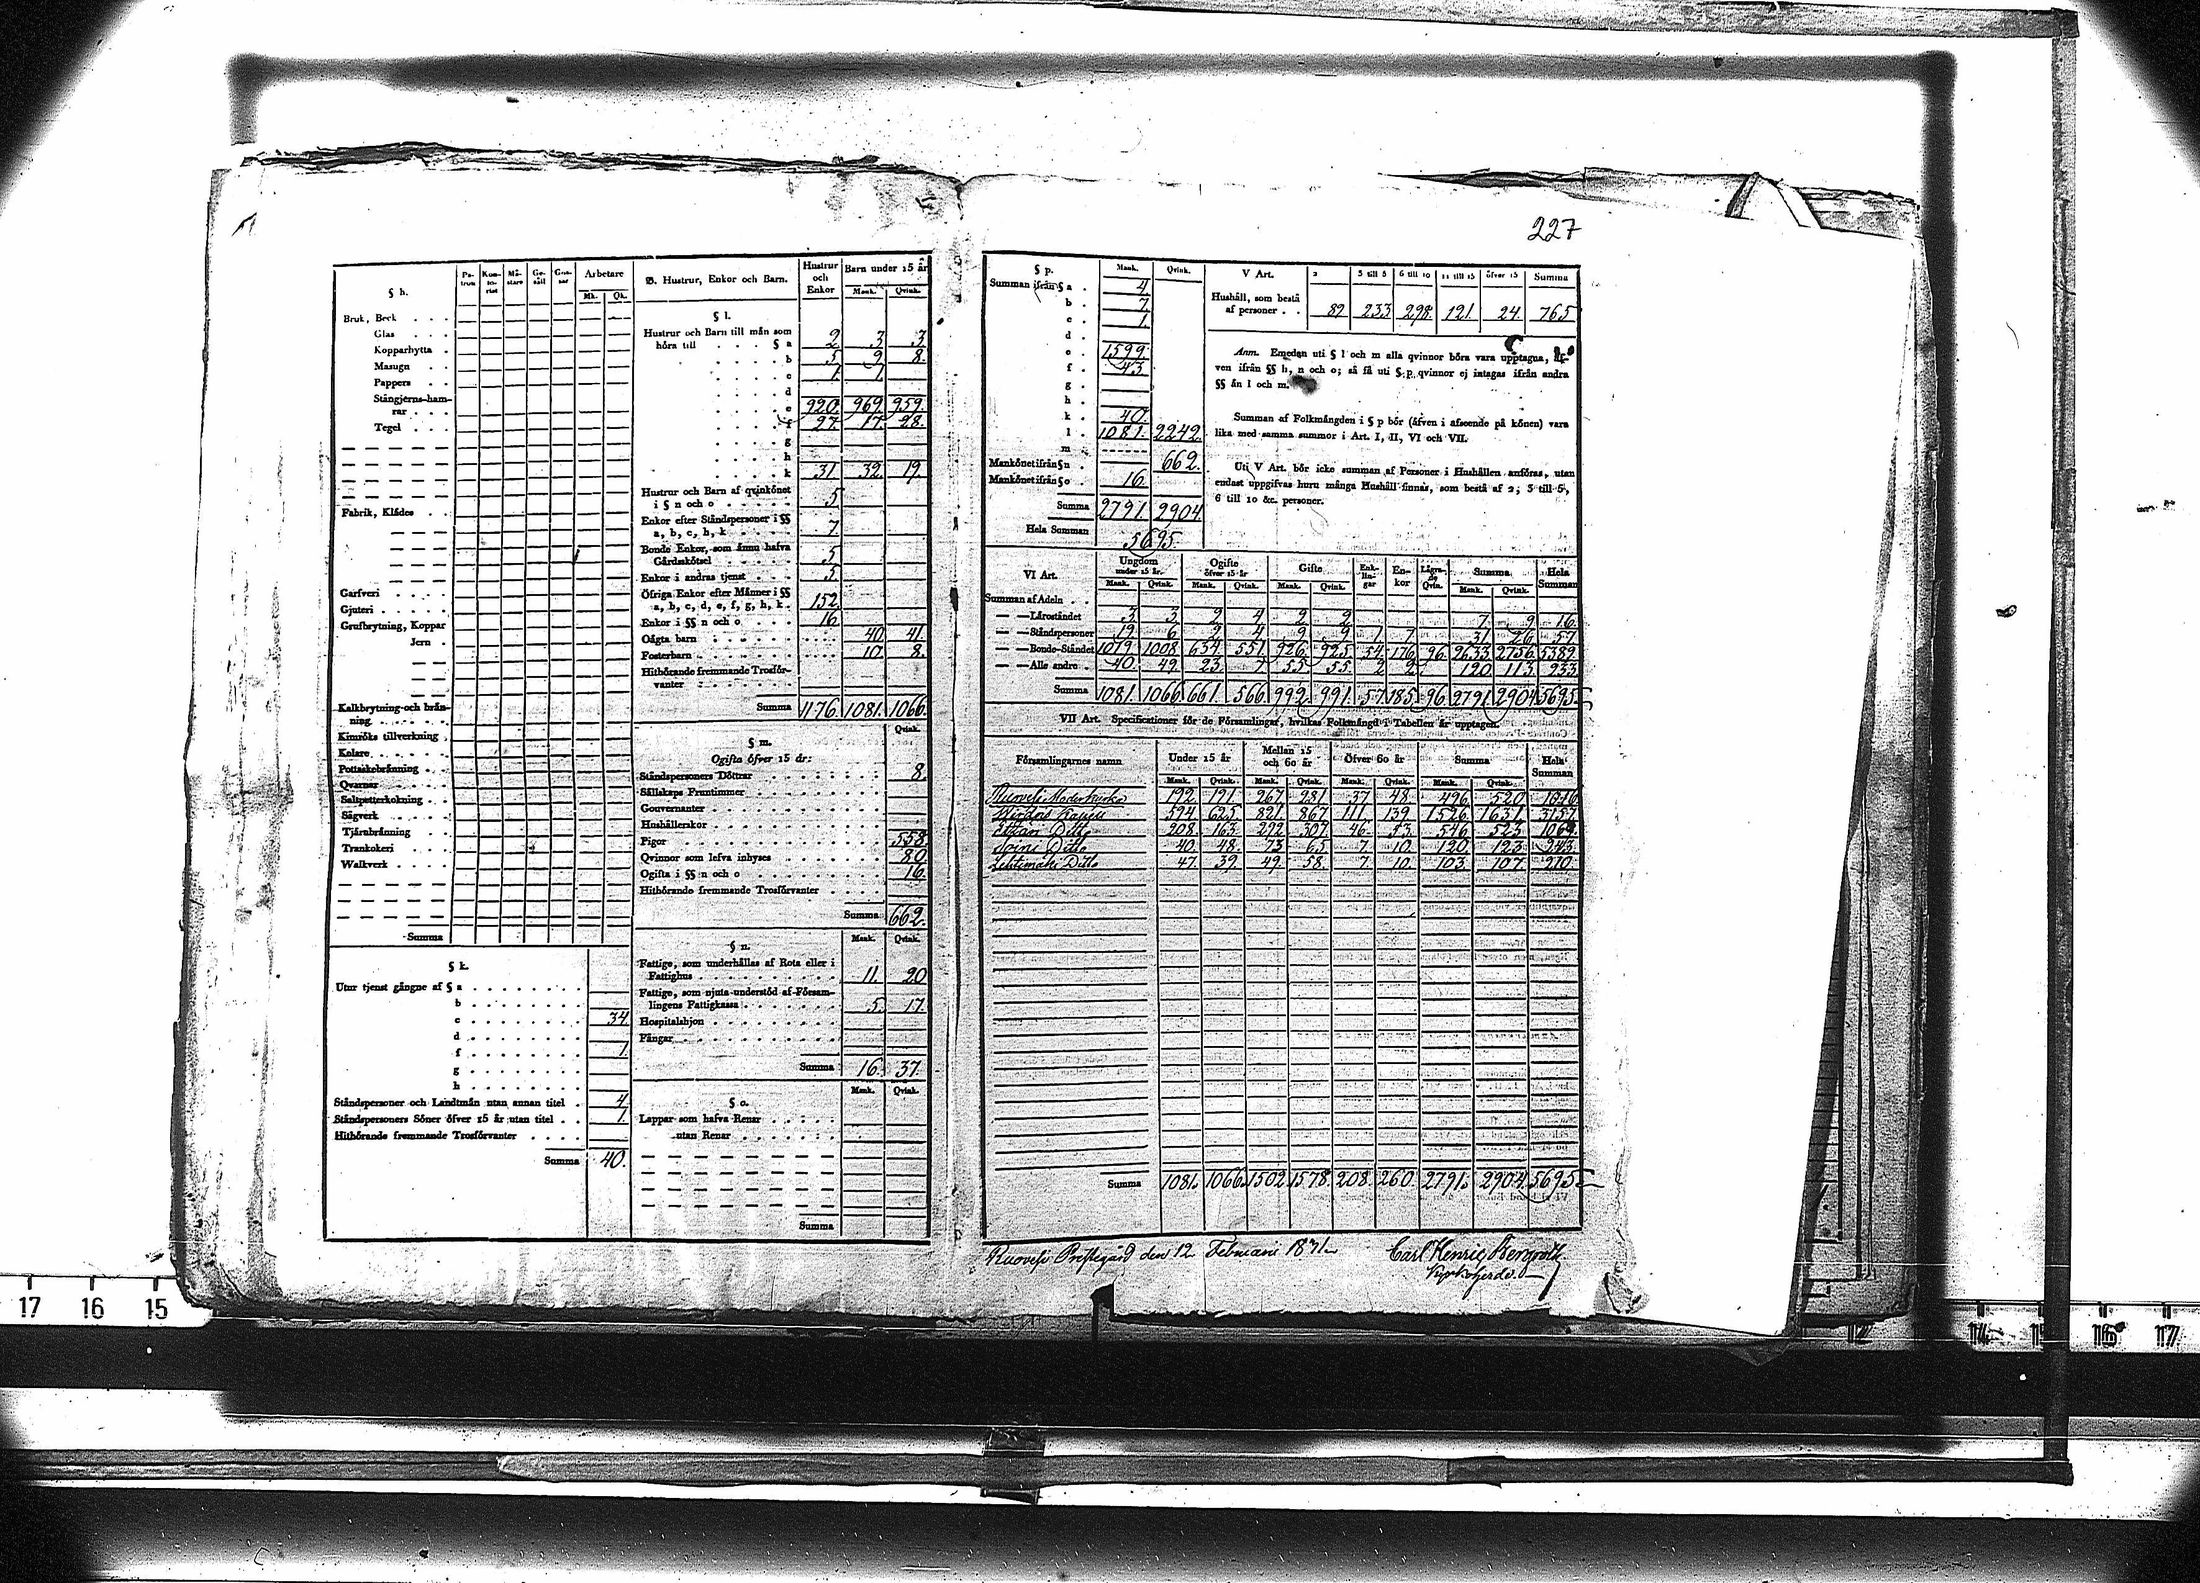 227
§ h.
Pa-tron Kon-to-rist Mä-stare Ge-säll Gos-sar Arbetare
Mk. Qk.
Bruk, Beck
Glas
Kopparhytta
Masugn
Pappers
Stångjerns-ham-
rar
Tegel
Fabrik, Klädes
Garfveri
Gjuteri
Grufbrytning, Koppar
Jern
Kalkbrytning och brän-
ning
Kimröks tillverkning
Kolare
Pottaskebränning
Qvarnar
Saltpetterkokning
Sågverk
Tjärubränning
Trankokeri
Walkverk
Summa
§ k.
Utur tjenst gångne af § a
b
c 34
d
f 1.
g
h
Ståndspersoner och Landtmän utan annan titel 4
Ståndspersoners Söner öfver 15 år utan titel 1.
Hithörande fremmande Trosförvanter
Summa 40.
D. Hustrur, Enkor och Barn. Hustrur och Enkor Barn under 15 år
Mank. Qvink.
§ l.
Hustrur och Barn till män som
höra till § a 2 3 3
b 5 9 8.
c 1. 1.
d
e 920. 969. 959.
f 27. 17. 28.
g
h
k 31. 32. 19.
Hustrur och Barn af qvinkönet
i § n och o 5
Enkor efter Ståndspersoner i §§
a, b, c, h, k 7.
Bonde Enkor, som ännu hafva
Gårdsskötsel 5
Enkor i andras tjenst 5.
Öfriga Enkor efter Männer i §§
a, b, c, d, e, f, g, h, k 152.
Enkor i §§ n och o 16.
Oägta barn 40. 41.
Fosterbarn 10. 8.
Hithörande fremmande Trosför-
vanter
Summa 1176. 1081. 1066.
Qvink.
§ m.
Ogifta öfver 15 år:
Ståndspersoners Döttrar 8.
Sällskaps Fruntimmer
Gouvernanter
Hushållerskor
Pigor 558.
Qvinnor som lefva inhyses 80.
Ogifta i §§ n och o 16.
Hithörande fremmande Trosförvanter
Summa 662.
Mank. Qvink.
§ n.
Fattige, som underhållas af Rota eller i
Fattighus 11. 20
Fattige, som njuta understöd af Försam-
lingens Fattigkassa 5. 17.
Hospitalshjon
Fångar
Summa 16. 37.
Mank. Qvink.
§ o.
Lappar som hafva Renar
utan Renar
Summa
§ p. Mank. Qvink.
Summan ifrån § a 4
b 7.
c 1.
d
e 1599.
f 43.
g
h
k 40.
l 1081. 2242.
m 662.
Mankönet ifrån § n 16.
Mankönet ifrån § o
Summa 2791. 2904.
Hela Summan 5695.
V Art. 2 3 till 5 6 till 10 11 till 15 öfver 15 Summa
Hushåll, som bestå
af personer 89 233 298. 121. 24. 765
Anm. Emedan uti § l och m alla qvinnor böra vara upptagna, äf-
ven ifrån §§ h, n och o; så få uti § p qvinnor ej intagas ifrån andra
§§ än l och m.
Summan af Folkmängden i § p bör (äfven i afseende på könen) vara
lika med samma summor i Art. I, II, VI och VII.
Uti V Art. bör icke summan af Personer i Hushållen anföras, utan
endast uppgifvas huru många Hushåll finnas, som bestå af 2; 3 till 5,
6 till 10 &c. personer.
VI Art. Ungdom under 15 år. Ogifte öfver 15 år Gifte Enk-lin-gar En-kor Lägra-de Qvin. Summa Hela Summan
Mank. Qvink. Mank. Qvink. Mank. Qvink. Mank. Qvink.
Summan af Adeln
— — Läroståndet 3 3 2 4 2 2 7 9 16.
— — Ståndspersoner 19 6 2 4 9 9 1 7 31 26 57
— — Bonde-Ståndet 1019 1008 634 551. 926. 925. 54. 176 96. 2633 2756 5389.
— — Alle andre 40. 49. 23. 7 55. 55. 2 2 120. 113. 233.
Summa 1081. 1066 661. 566 992. 991. 57. 185. 96. 2791. 2904 5695.
VII Art. Specificationer för de Församlingar, hvilkas Folkmängd i Tabellen är upptagen.
Församlingarnes namn Under 15 år Mellan 15 och 60 år Öfver 60 år Summa Hela Summan
Mank. Qvink. Mank. Qvink. Mank. Qvink. Mank. Qvink.
Ruovesi Moderkyrka 192. 191. 267. 281. 37. 48. 496. 520. 1016
Wirdois Kapell 594. 625. 821. 867. 111. 139. 1526. 1631. 3157.
Ditto 208. 163. 292. 307. 46. 53. 546. 523. 1069.
Ditto 40. 48. 73. 65. 7. 10. 120. 123. 243.
Ditto 47. 39. 49. 58. 7. 10. 103. 107. 210.
Summa 1081. 1066. 1502. 1578. 208. 260. 2791. 2904. 5695.
Ruovesi Prestegård den 12 Februari 1831. Carl Henric Bergroth
Kyrkoherde.
17 16 15
14 15 16 17